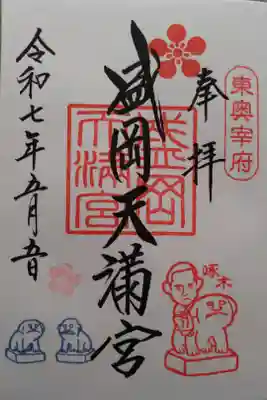 東奥宰府
奉拝
盛岡天満宮
盛岡
天満宮
啄木
令和七年五月五日